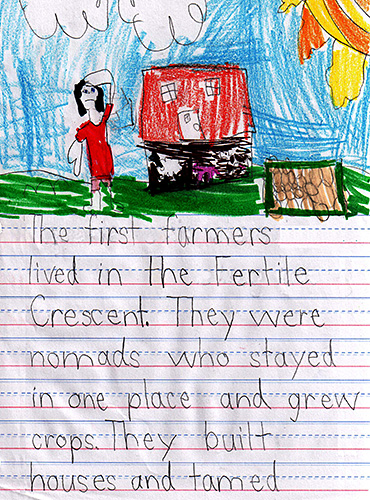 The first farmers
lived in the Fertile
Crescent. They were
nomads who stayed
in one place and grew
crops. They built
houses and tamed